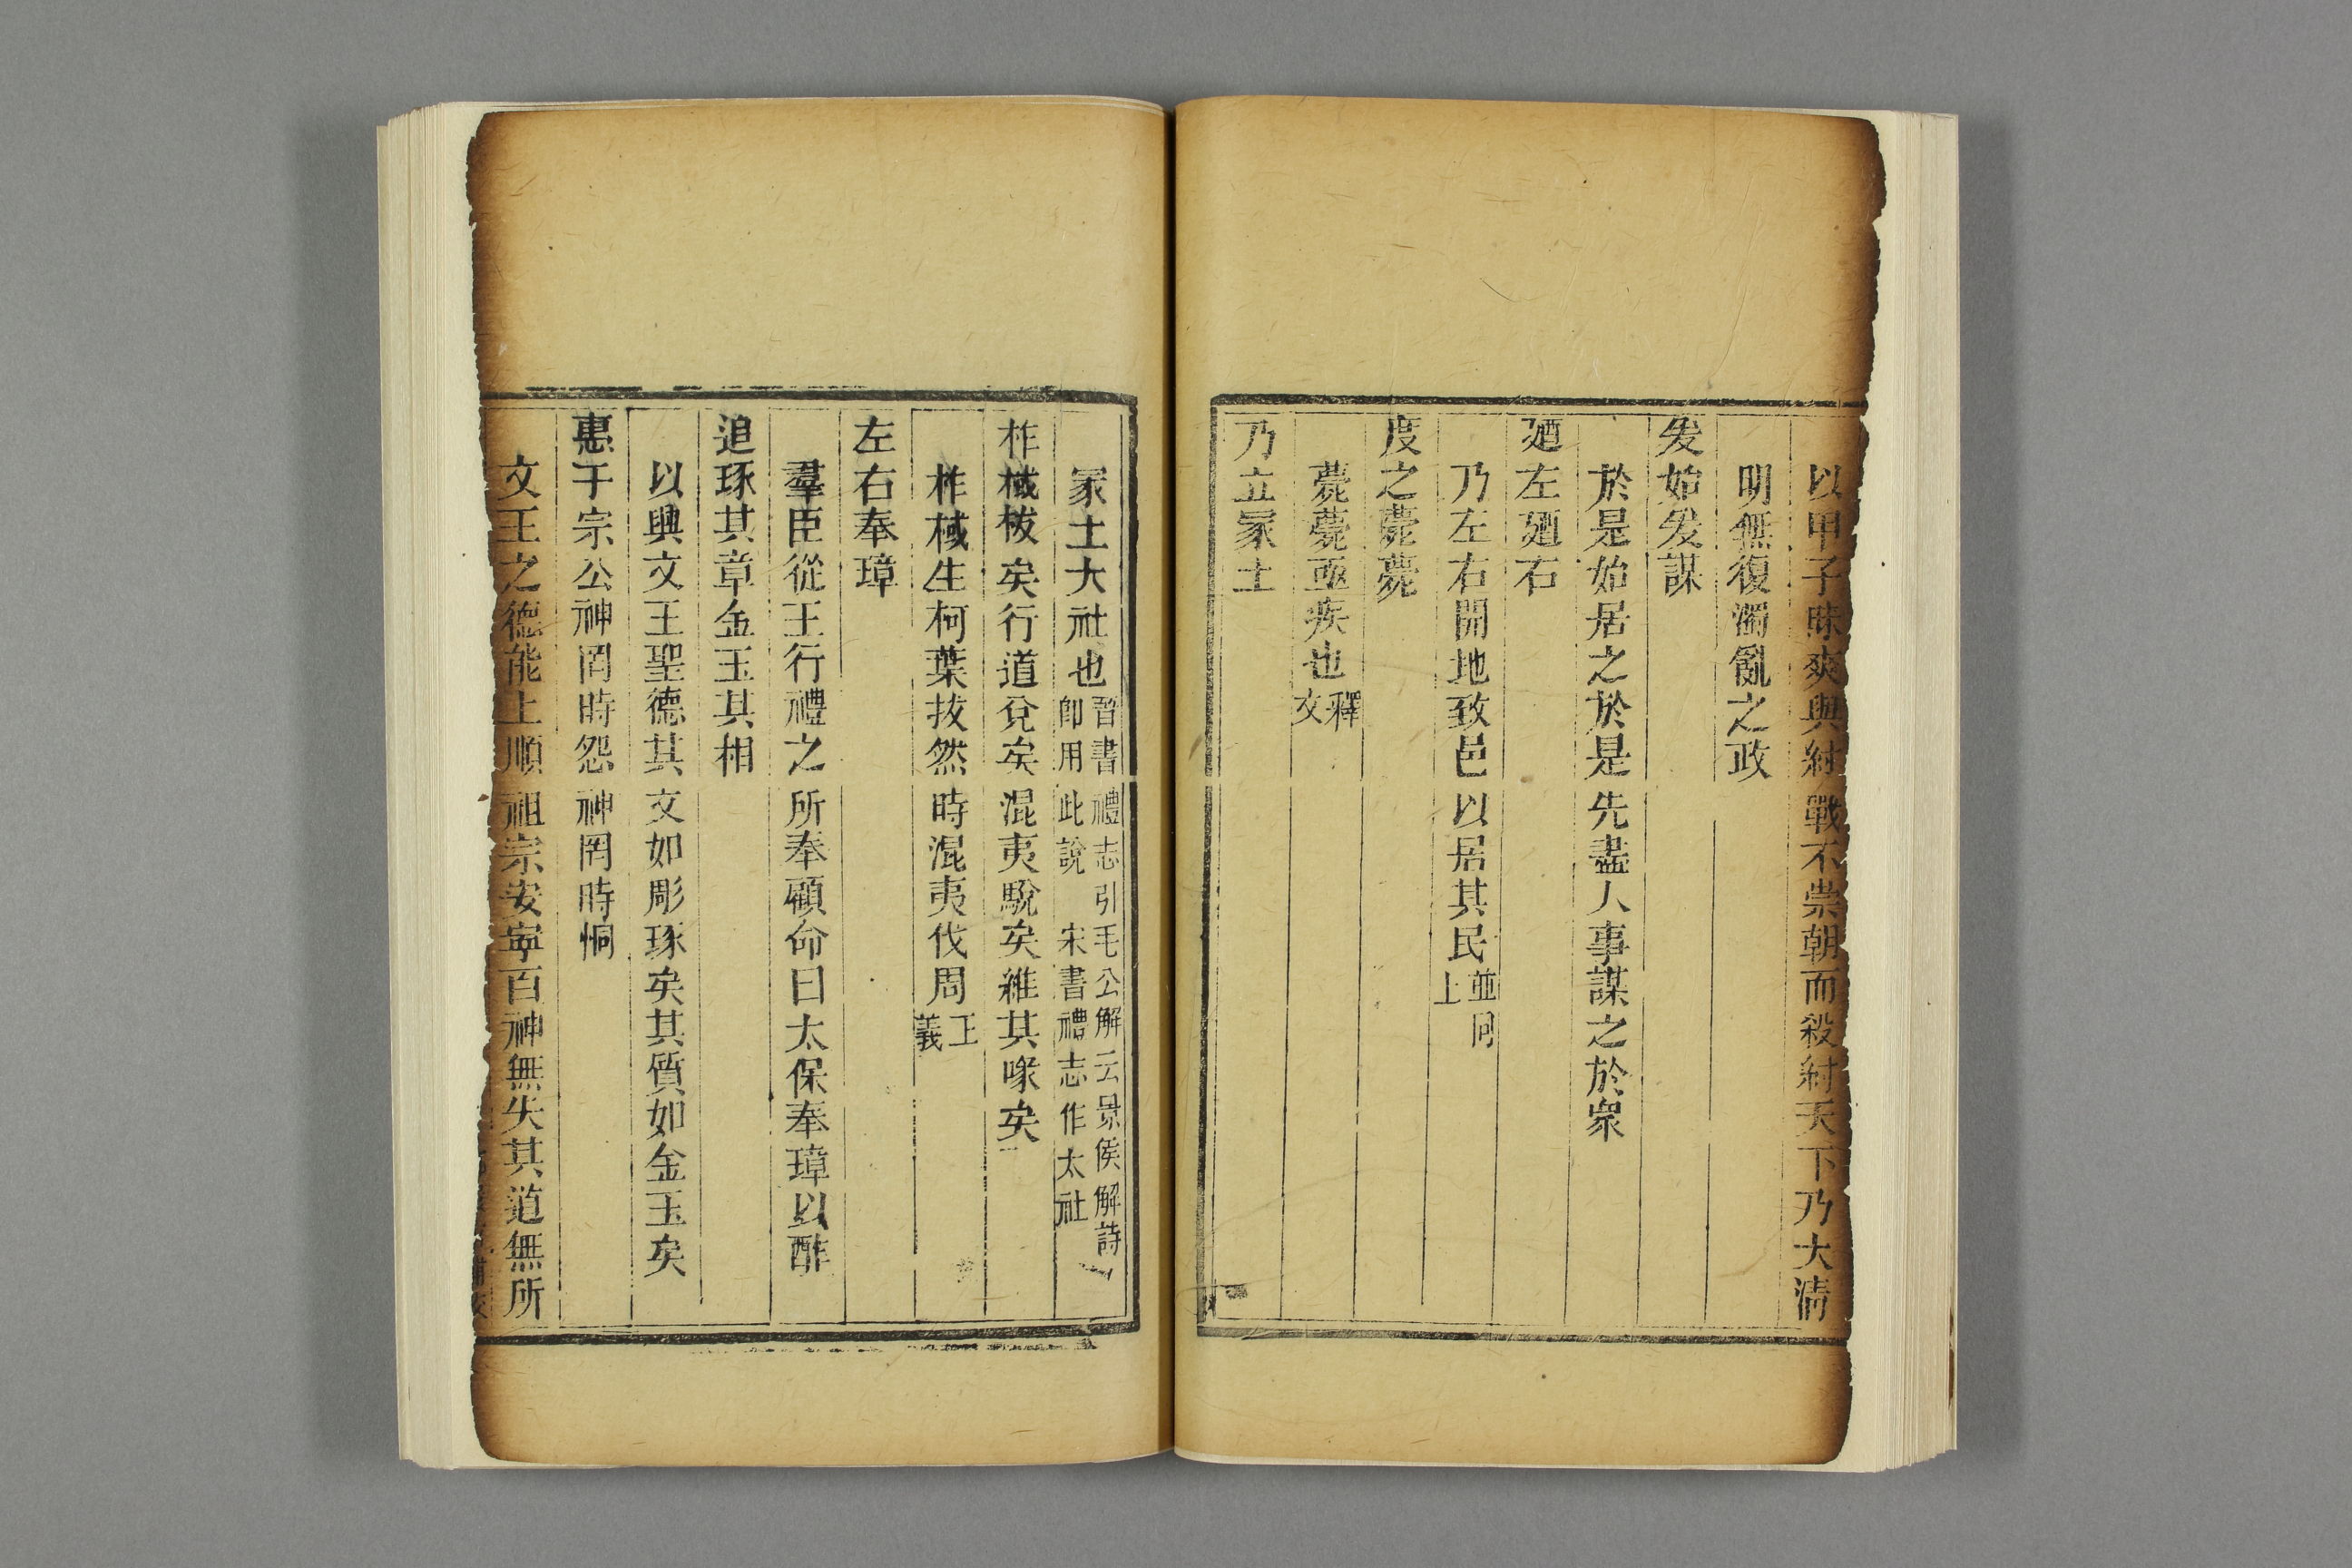 以甲子昧爽與紂戰不崇朝而殺紂天下乃大淸
明無復濁亂之政
爰始爰謀
於是始居之於是先盡人事謀之於衆
廼左廼右
乃左右開地致邑以居其民並同上
度之薨薨
薨薨亟疾也釋文
乃立冢土
冢土大社也晋書禮志引毛公解云景侯解詩
卽用此說 宋書禮志作太社
柞棫拔矣行道兌矣混夷駾矣維其喙矣
柞棫生柯葉拔然時混夷伐周正義
左右奉璋
羣臣從王行禮之所奉顧命曰太保奉璋以酢
追琢其章金玉其相
以興文王聖德其文如彫琢矣其質如金玉矣
惠于宗公神罔時怨神罔時恫
文王之德能上順祖宗安寧百神無失其道無所